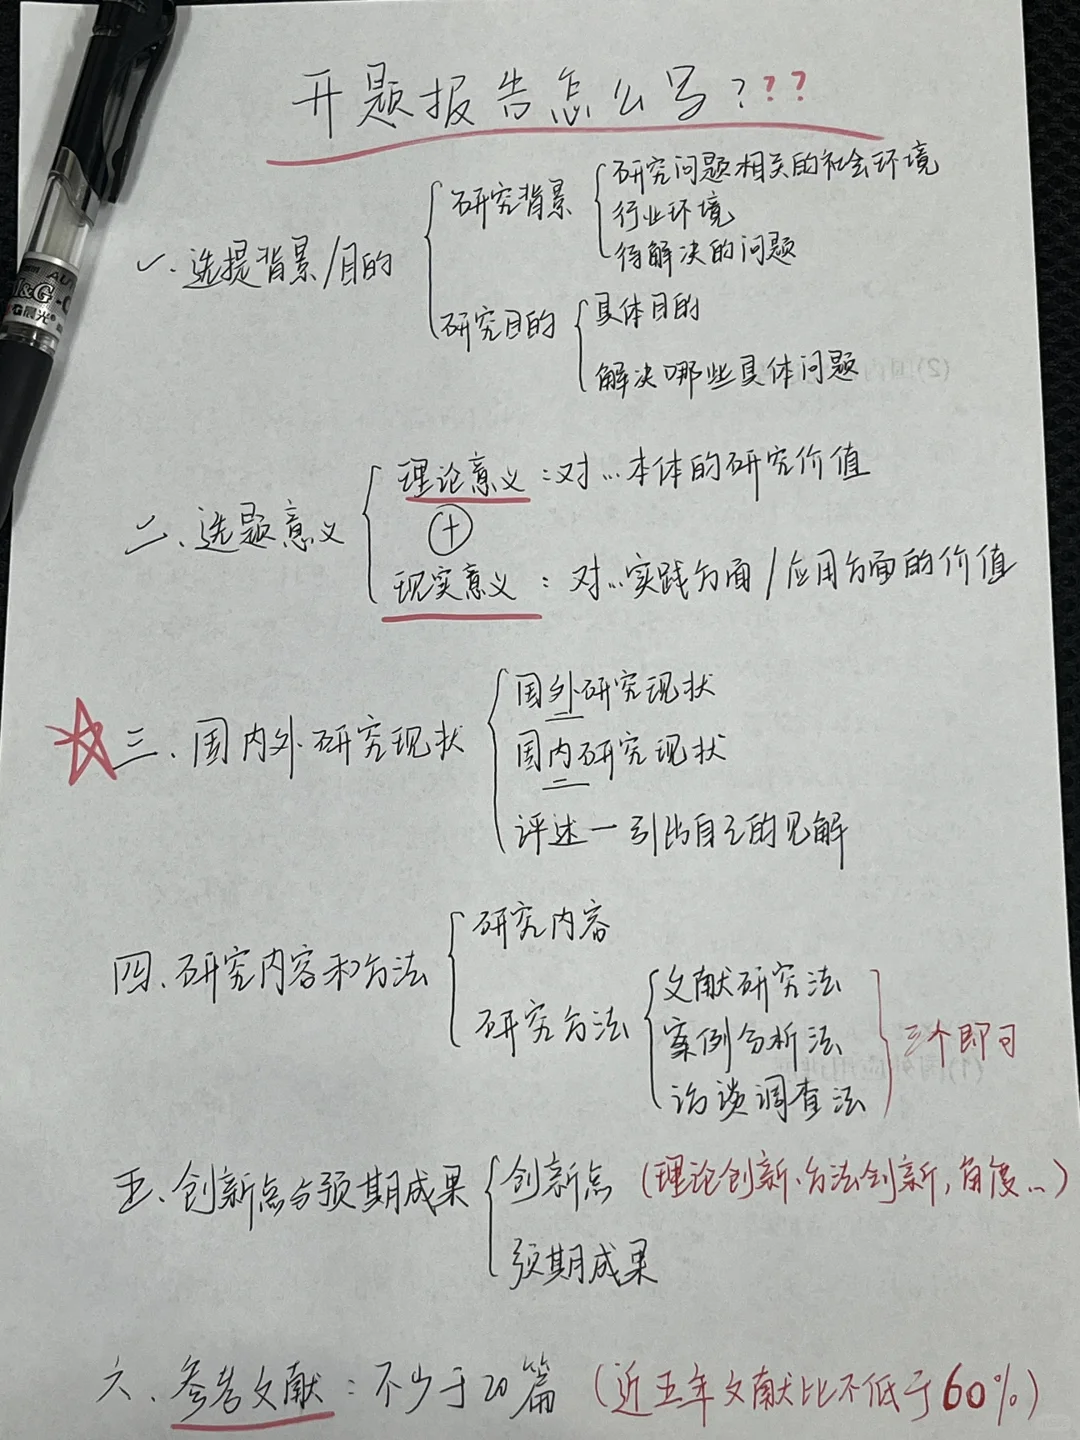 开题报告怎么写???
一、选提背景/目的
研究背景
研究问题相关的社会环境
行业环境
待解决的问题
研究目的
具体目的
解决哪些具体问题
二、选题意义
理论意义:对…本体的研究价值
+
现实意义:对…实践方面/应用方面的价值
三、国内外研究现状
国外研究现状
国内研究现状
评述一引出自己的见解
四、研究内容和方法
研究内容
研究方法
文献研究法
案例分析法
访谈调查法
三个即可
五、创新点与预期成果
创新点(理论创新、方法创新,角度…)
预期成果
六、参考文献:不少于20篇(近五年文献比不低于60%)
M&G晨光